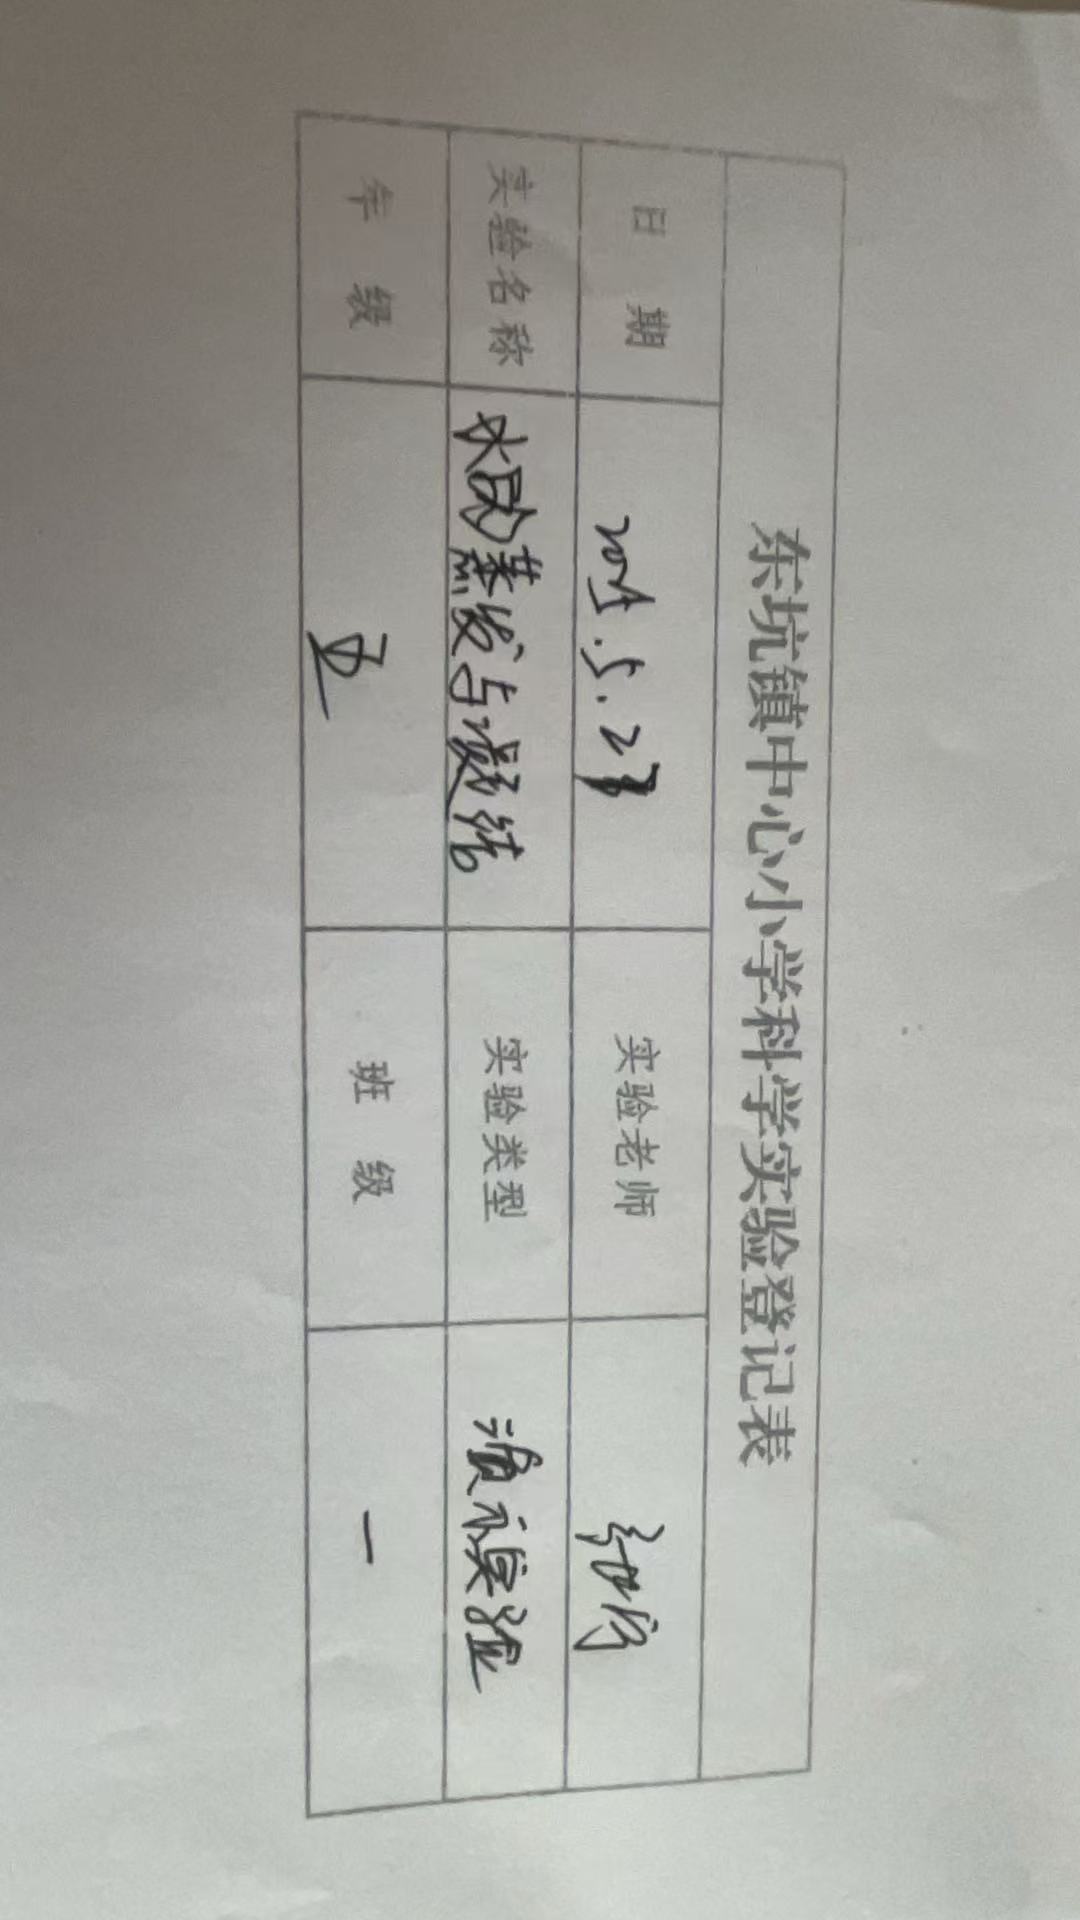 东坑镇中心小学科学实验登记表
日 期 实验老师
实验名称 水的蒸发与凝结 实验类型 演示实验
年 级 五 班 级 一